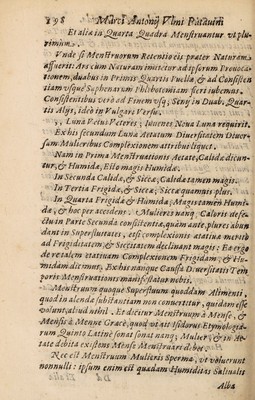 198 Marci Antonij Vlmi Patauini
Et alia in Quarta Quadra Menstruantur vt plu-
rimum.
Vnde si Menstruorum Retentio eis prater Naturam
assuerit: Ars cum Naturam imitetur ad ipsorum Prouoca-
tionem, duabus in Primis Quartis Puellæ, & ad Consisten
tiam vsque Saphenarum Phlibotomiam fieri iubemus.
Consistentibus verò ad Finem vsq; Seny in Duab. Quar-
tis Alijs, idèo in Vulgari Versu.
Luna Vetus Veteres; Iuuenes Noua Luna requirit.
Ex his secundum Luna Aetatum Diuersitatem Diuer-
sum Mulieribus Complexionem attribui liquet.
Nam in Prima Menstruationis Aetate, Calida dicun-
tur, & Humida, Ello magis Humidæ.
In Secunda Calidæ, & Siccæ, Calidæ tamen magis.
In Tertia Frigidæ, & Siccæ, Siccæ quamuis plus.
In Quarta Frigidæ & Humida; Magis tamen Humi-
da, & hoc per accedens. Mulieres nanq. Caloris defe-
ctu in Parte Secunda consistentiæ, quàm ante, plures abun
dant in Superfluitates, est complexionis etatiua meritò
ad Frigiditatem & Siccitatem declinant magis; Ea ergo
de retalem etatiuam Complexionem Frigidam, & Hu-
midam dicimus, Ex his nanque Causa Diuersitatis Tem
poris Menstruationis manifestatur nobis.
Menstruum quoque Superfluum quoddam Alimenti,
quod in alenda substantiam non conuertitur, quidam esse
volunt, aliud nihil. Et dicitur Menstruum à Mense, &
Mensis à Menne Græcè, quod vt ait Isidorus Etymologia-
rum Quinto Latinè sonat sonat nanq; Mulier, & in Ae-
tate debita existens Mense Menstruari debet.
Nec est Menstruum Mulieris Sperma, vt voluerunt
nonnulli: ipsum enim est quædam Humiditas Saliualis
Alba